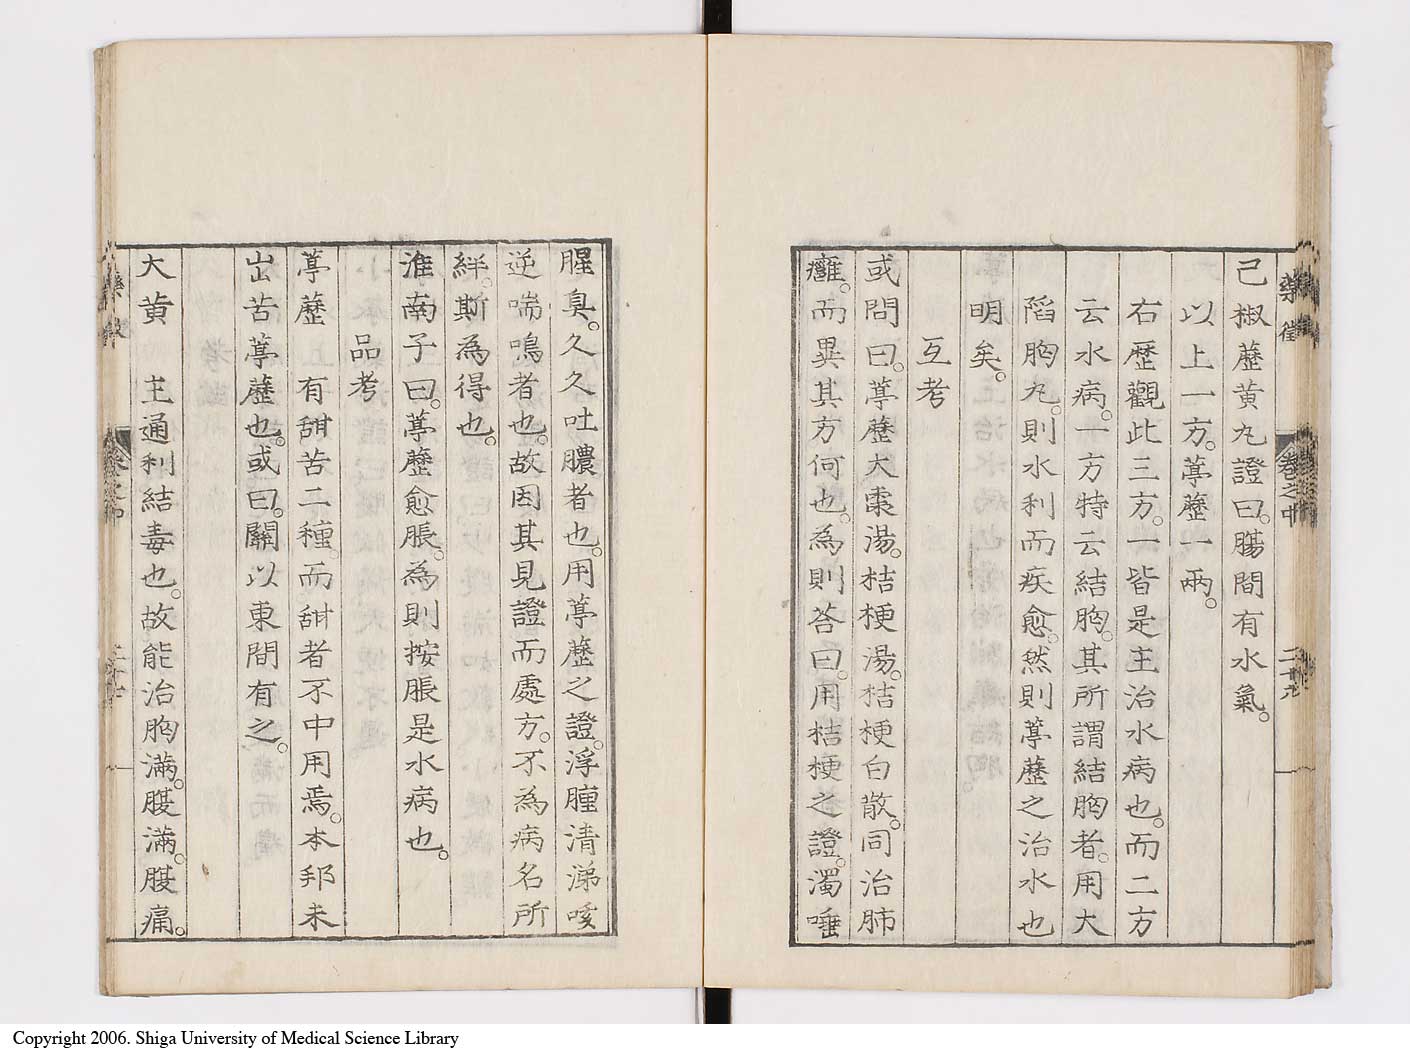 藥徵 卷之中 二十九
己椒藶黃丸證曰。腸間有水氣。
以上一方。葶藶一兩。
右歷觀此三方。一皆是主治水病也。而二方
云水病。一方特云結胸。其所謂結胸者。用大
陷胸丸。則水利而疾愈。然則葶藶之治水也
明矣。
互考
或問曰。葶藶大棗湯。桔梗湯。桔梗白散。同治肺
癰。而異其方何也。為則荅曰。用桔梗之證。濁唾
腥臭。久久吐膿者也。用葶藶之證。浮腫清涕咳
逆喘鳴者也。故因其見證而處方。不為病名所
絆。斯為得也。
淮南子曰。葶藶愈脹。為則按脹是水病也。
品考
葶藶 有甜苦二種。而甜者不中用焉。本邦未
出苦葶藶也。或曰。關以東間有之。
大黃 主通利結毒也。故能治胸滿。腹滿。腹痛。
Copyright 2006. Shiga University of Medical Science Library